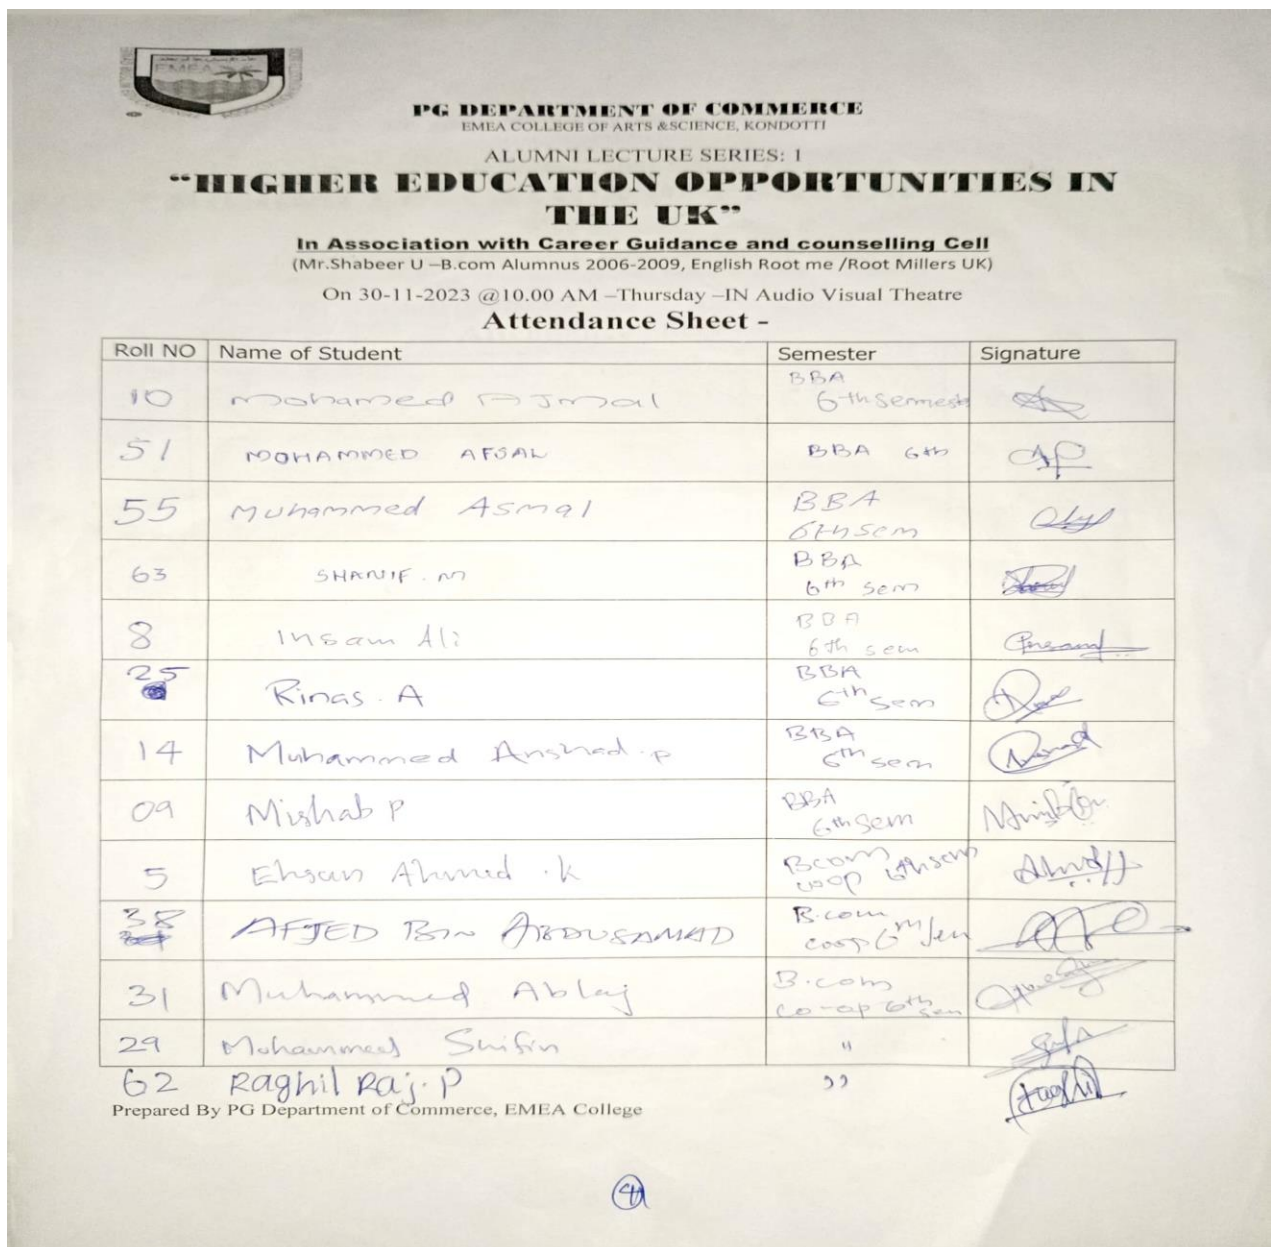 EMEA
PG DEPARTMENT OF COMMERCE
EMEA COLLEGE OF ARTS &SCIENCE, KONDOTTI
ALUMNI LECTURE SERIES: 1
"HIGHER EDUCATION OPPORTUNITIES IN
THE UK"
In Association with Career Guidance and counselling Cell
(Mr.Shabeer U –B.com Alumnus 2006-2009, English Root me /Root Millers UK)
On 30-11-2023 @10.00 AM –Thursday –IN Audio Visual Theatre
Attendance Sheet -
Roll NO Name of Student Semester Signature
10 Mohamed Ajmal BBA
6th Semester
51 MOHAMMED AFSAL BBA 6th
55 Muhammed Asmal BBA
6th sem
63 SHANIF. M BBA
6th sem
8 Insam Ali BBA
6th sem
25 Rinas. A BBA
6th sem
14 Muhammed Anshad. P BBA
6th sem
09 Mishab P BBA
6th sem
5 Ehsan Ahmed .k Bcom
coop 6th sem
38 AFJED BIN ABDUSAMAD B.com
coop 6th sem
31 Muhammed Ablaj B.com
co-op 6th sem
29 Mohammed Shifin "
62 Raghil Raj. P "
Prepared By PG Department of Commerce, EMEA College